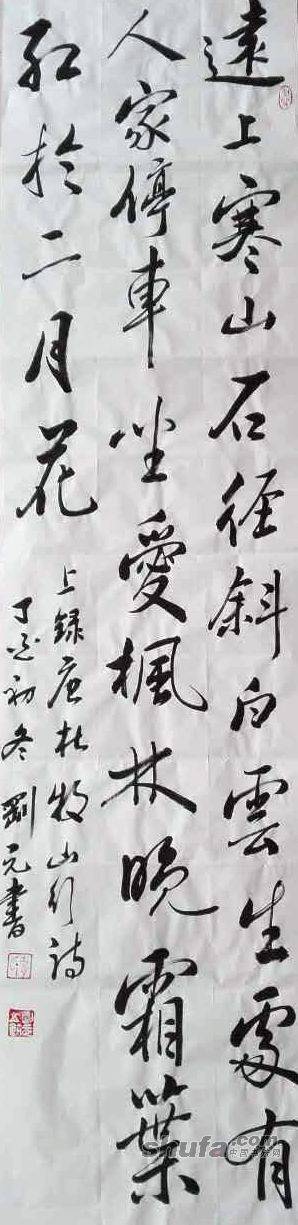 遠上寒山石徑斜白雲生處有
人家停車坐愛楓林晚霜葉
紅於二月花
上録唐杜牧山行詩
丁酉初冬劉元書
shufa.com
中国书法网